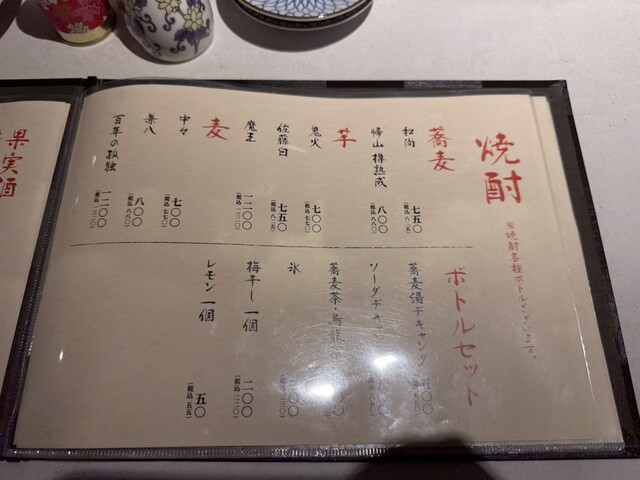 焼酎
※焼酎各種ボトルございます。
蕎麦
和尚 七五〇
(税込 八二五)
帰山 樽熟成 八〇〇
(税込 八八〇)
芋
鬼火 七〇〇
(税込 七七〇)
佐藤白 七五〇
(税込 八二五)
魔王 一二〇〇
(税込 一三二〇)
麦
中々 七〇〇
(税込 七七〇)
兼八 八〇〇
(税込 八八〇)
百年の孤独 一二〇〇
(税込 一三二〇)
ボトルセット
蕎麦湯デキャンタ
ソーダデキャ
蕎麦茶・烏龍
氷
梅干し 一個 二〇〇
(税込 二二〇)
レモン 一個 五〇
(税込 五五)
果実酒